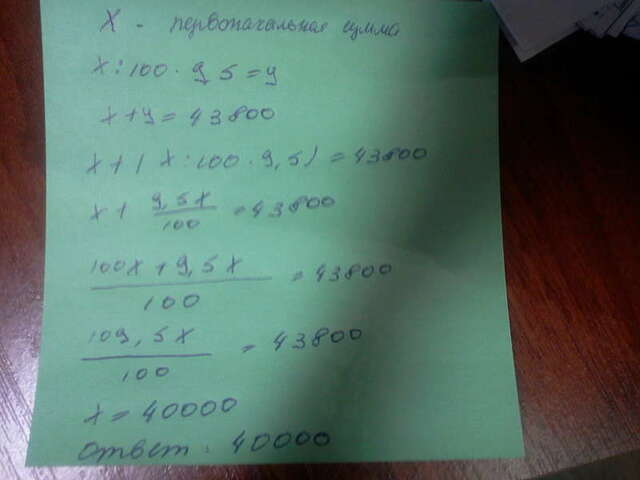 X - первоначальная сумма
x : 100 · 9,5 = y
x + y = 43800
x + ( x : 100 · 9,5 ) = 43800
x + 9,5x/100 = 43800
100x + 9,5x/100 = 43800
109,5x/100 = 43800
x = 40000
ответ : 40000